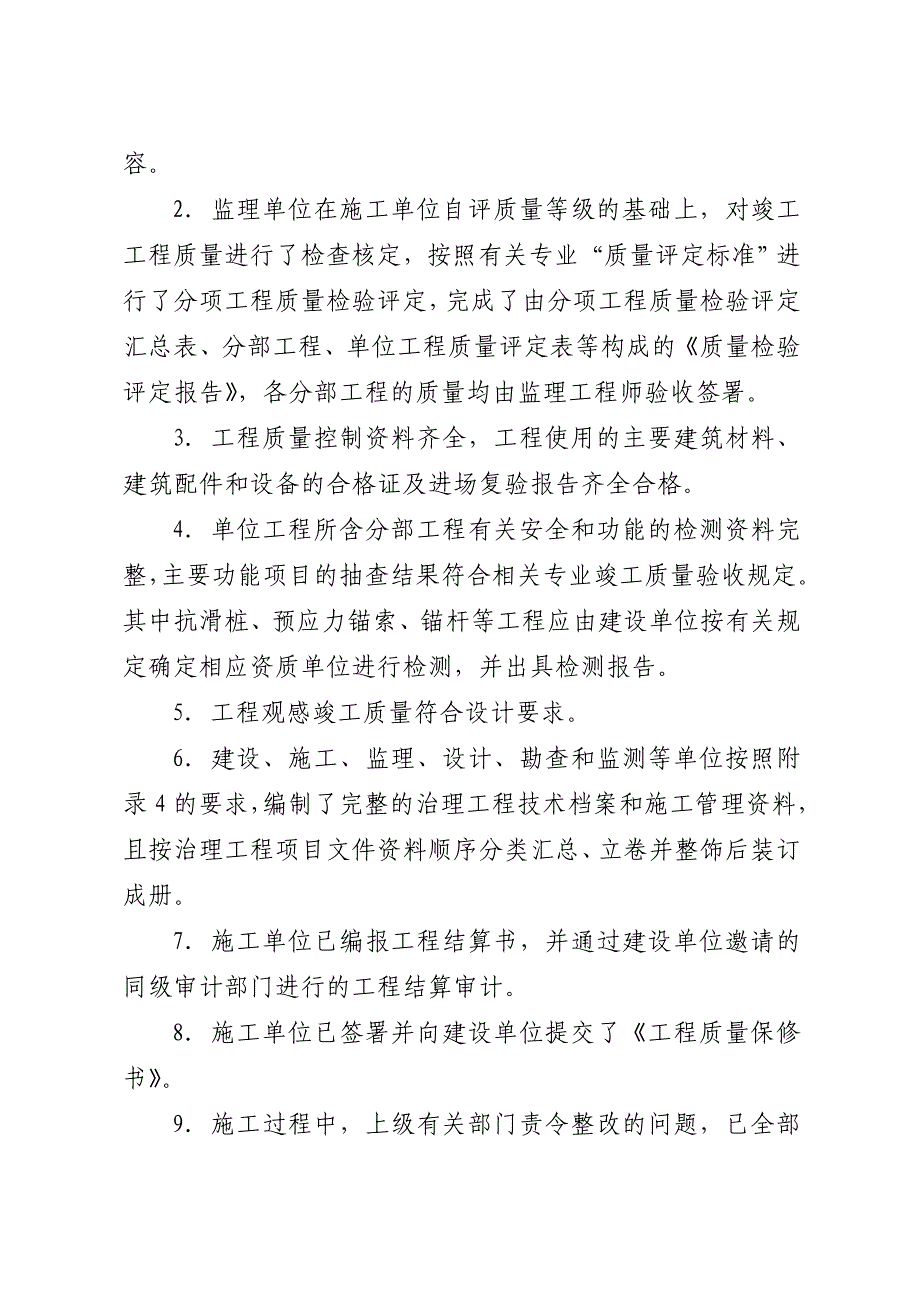 容。
2．监理单位在施工单位自评质量等级的基础上，对竣工
工程质量进行了检查核定，按照有关专业“质量评定标准”进
行了分项工程质量检验评定，完成了由分项工程质量检验评定
汇总表、分部工程、单位工程质量评定表等构成的《质量检验
评定报告》，各分部工程的质量均由监理工程师验收签署。
3．工程质量控制资料齐全，工程使用的主要建筑材料、
建筑配件和设备的合格证及进场复验报告齐全合格。
4．单位工程所含分部工程有关安全和功能的检测资料完
整，主要功能项目的抽查结果符合相关专业竣工质量验收规定。
其中抗滑桩、预应力锚索、锚杆等工程应由建设单位按有关规
定确定相应资质单位进行检测，并出具检测报告。
5．工程观感竣工质量符合设计要求。
6．建设、施工、监理、设计、勘查和监测等单位按照附
录 4 的要求，编制了完整的治理工程技术档案和施工管理资料，
且按治理工程项目文件资料顺序分类汇总、立卷并整饰后装订
成册。
7．施工单位已编报工程结算书，并通过建设单位邀请的
同级审计部门进行的工程结算审计。
8．施工单位已签署并向建设单位提交了《工程质量保修
书》。
9．施工过程中，上级有关部门责令整改的问题，已全部